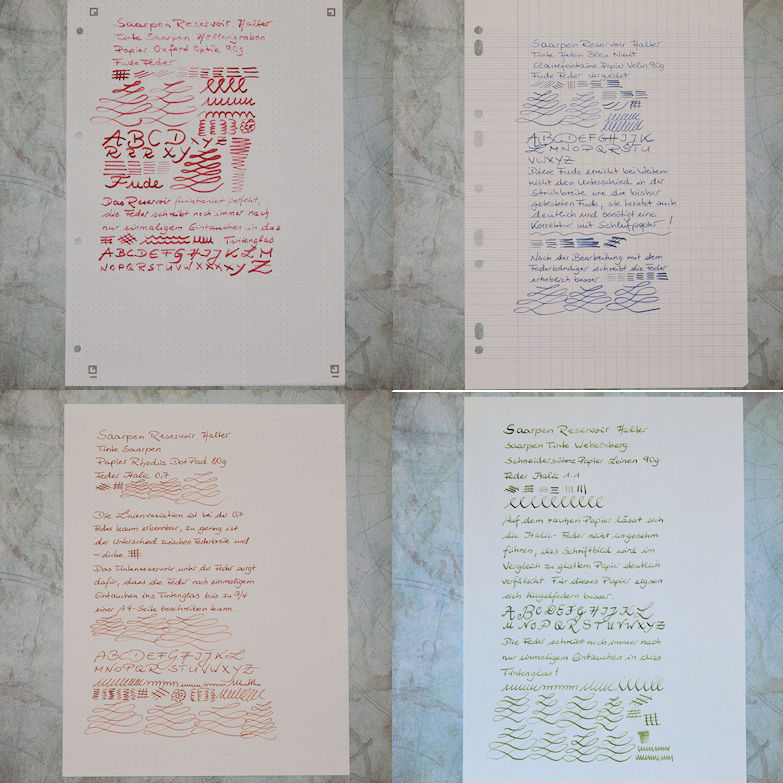 Saarpen Reservoir Halter
Tinte Saarpen Höllengraben
Papier Oxford Optik 90g
Fude Feder
A B C D X Y Z
R R R X Y
Fude
Das Reservoir funktioniert perfekt,
die Feder schreibt noch immer nach
nur einmaligem Eintauchen in das
Tintenglas
A B C D E F G H I J K L M
N O P Q R S T U V W X X X X Y Z
Saarpen Reservoir Halter
Tinte Herbin Bleu Nuit
Clairefontaine Papier Velin 90g
Fude Feder vergoldet
A B C D E F G H I J K
L M N O P Q R S T U
V W X Y Z
Diese Fude erreicht bei Weitem
nicht den Unterschied in der
Strichbreite wie die bisher
getesteten Fude, sie kratzt auch
deutlich und benötigt eine
Korrektur mit Schleifpapier!
Nach der Bearbeitung mit dem
Federbändiger schreibt die Feder
erheblich besser.
Saarpen Reservoir Halter
Tinte Saarpen
Papier Rhodia DotPad 80g
Feder Italic 0,7
Die Linienvariation ist bei der 0,7
Feder kaum erkennbar, zu gering ist
der Unterschied zwischen Federbreite und
-dicke.
Das Tintenreservoir unter der Feder sorgt
dafür, dass die Feder nach einmaligem
Eintauchen ins Tintenglas bis zu 3/4
einer A4-Seite beschreiben kann.
A B C D E F G H I J K L
M N O P Q R S T U V W X Y Z
Saarpen Reservoir Halter
Saarpen Tinte Webersberg
Schneidersöhne Papier Leinen 90g
Feder Italic 1.1
Auf dem rauhen Papier lässt sich
die Italic-Feder nicht angenehm
führen, das Schriftbild wird im
Vergleich zu glattem Papier deutlich
verfälscht. Für dieses Papier eignen
sich Kugelfedern besser.
A B C D E F G H I J K L
M N O P Q R S T U V W X Y Z
Die Feder schreibt noch immer nach
nur einmaligem Eintauchen in das
Tintenglas!